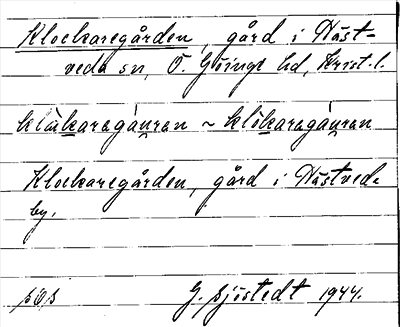 Klockaregården, gård i Häst-
veda sn, Ö. Göinge hd, Krist. l.
klåkaregáṷran ~ klökaregáṷran
Klockaregården, gård i Hästveda
by.
G. Sjöstedt 1944.